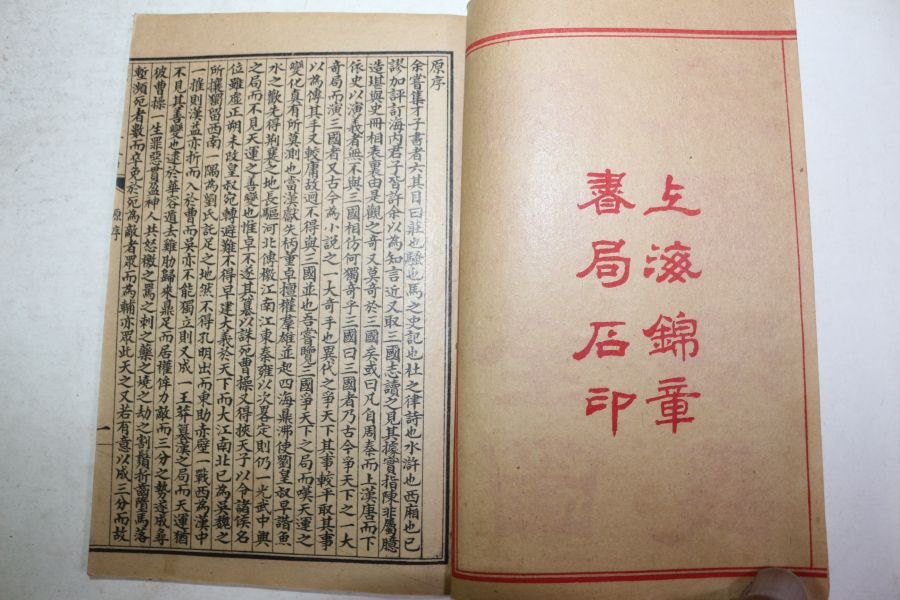 上海錦章
書局石印
原序
余嘗集才子書者六其目曰莊也騷也馬之史記也杜之律詩也水滸也西廂也已
謬加評訂海内君子皆許余以為知言近又取三國志讀之見其據實指陳非屬臆
造堪與史冊相表裏由是觀之奇又莫奇於三國矣或曰凡自周秦而上漢唐而下
依史以演義者無不與三國相仿何獨奇乎三國曰三國者乃古今爭天下之一大
奇局而演三國者又古今為小說之一大奇手也異代之爭天下其事較平取其事
以為傳其手又較庸故迥不得與三國並也吾嘗覽三國爭天下之局而嘆天運之
變化真有所莫測也當漢獻失柄董卓擅權羣雄並起四海鼎沸使劉皇叔早諧魚
水之歡先得荆襄之地長驅河北傳檄江南江東秦雍以次畧定則仍一光武中興
之局而不見天運之善變也惟卓不遂其篡以誅死曹操又得挾天子以令諸侯名
位雖虛正朔未改皇叔宛轉避難不得早建大義於天下而大江南北已為吳魏之
所攘獨留西南一隅為劉氏託足之地然不得孔明出而東助赤壁一戰西為漢中
一推則漢益亦折而入於曹而吳亦不能獨立則又成一王莽篡漢之局而天運猶
不見其善變也逮於華容遁去雞肋歸來鼎足而居權侔力敵而三分之勢遂成尋
彼曹操一生罪惡貫盈神人共怒檄之罵之刺之藥之燒之劫之割鬚折齒墮馬落
塹瀕死者數而卒免於死為敵者眾而為輔亦眾此天之又若有意以成三分而故
原序
一